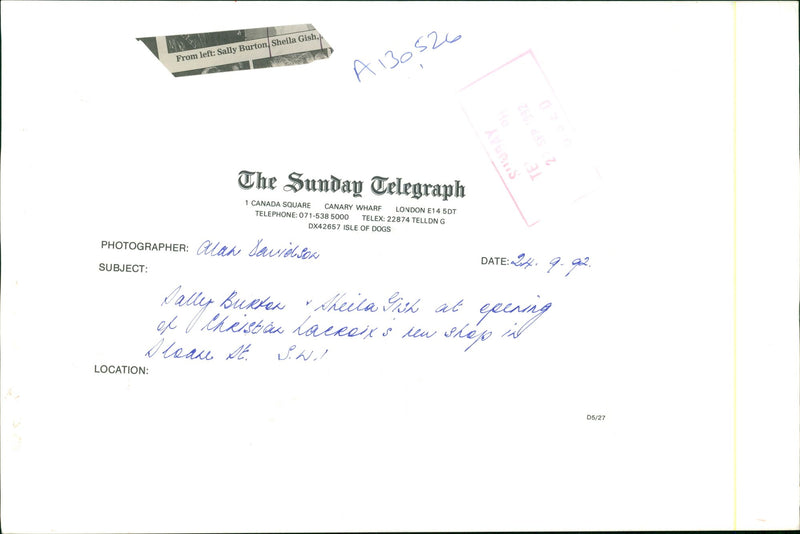 From left: Sally Burton, Sheila Gish,
A130526
SUNDAY
SEP 1992
The Sunday Telegraph
1 CANADA SQUARE CANARY WHARF LONDON E14 5DT
TELEPHONE: 071-538 5000 TELEX: 22874 TELLDN G
DX42657 ISLE OF DOGS
PHOTOGRAPHER: Alan Davidson
DATE: 24. 9. 92.
SUBJECT:
Sally Burton & Sheila Gish at opening
of Christian Lacroix's new shop in
Sloane St. S.W.1
LOCATION:
D5/27